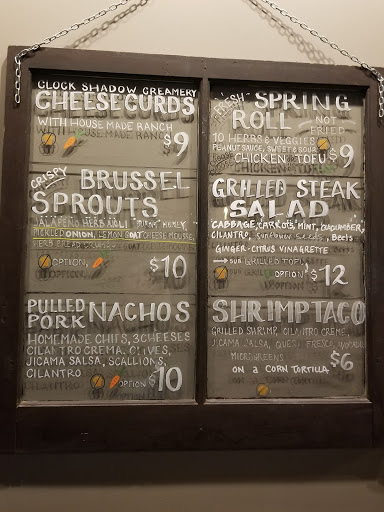 CLOCK SHADOW CREAMERY
CHEESE CURDS
WITH HOUSE MADE RANCH
$9
CRISPY BRUSSEL
SPROUTS
JALAPEÑO HERB AIOLI HONEY,
PICKLED ONION, LEMON GOAT CHEESE MOUSSE,
HERB BREAD
OPTION, $10
PULLED
PORK NACHOS
HOMEMADE CHIPS, 3 CHEESES
CILANTRO CREMA, OLIVES,
JICAMA SALSA, SCALLIONS,
CILANTRO
OPTION $10
"FRESH" SPRING
ROLL NOT
FRIED
10 HERBS & VEGGIES
PEANUT SAUCE, SWEET & SOUR
CHICKEN TOFU $9
GRILLED STEAK
SALAD
CABBAGE, CARROTS, MINT, CUCUMBER,
CILANTRO, SUNFLOWER SEEDS, Beets
GINGER-CITRUS VINAGRETTE
SUB GRILLED TOFU
OPTION $12
SHRIMP TACO
GRILLED SHRIMP, CILANTRO CREME,
JICAMA SALSA, QUESO FRESCO,
MICROGREENS
ON A CORN TORTILLA $6